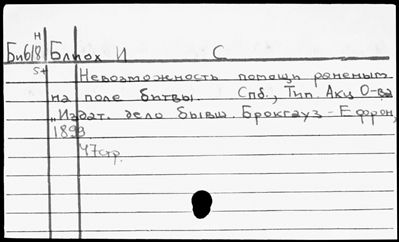 Н
Биб/8 Блиох И С
5+
Невозможность помощи раненым
на поле битвы. Спб., Тип. Акц О-ва
„Издат. дело бывш. Брокгауз-Ефрон,
1899
47стр.